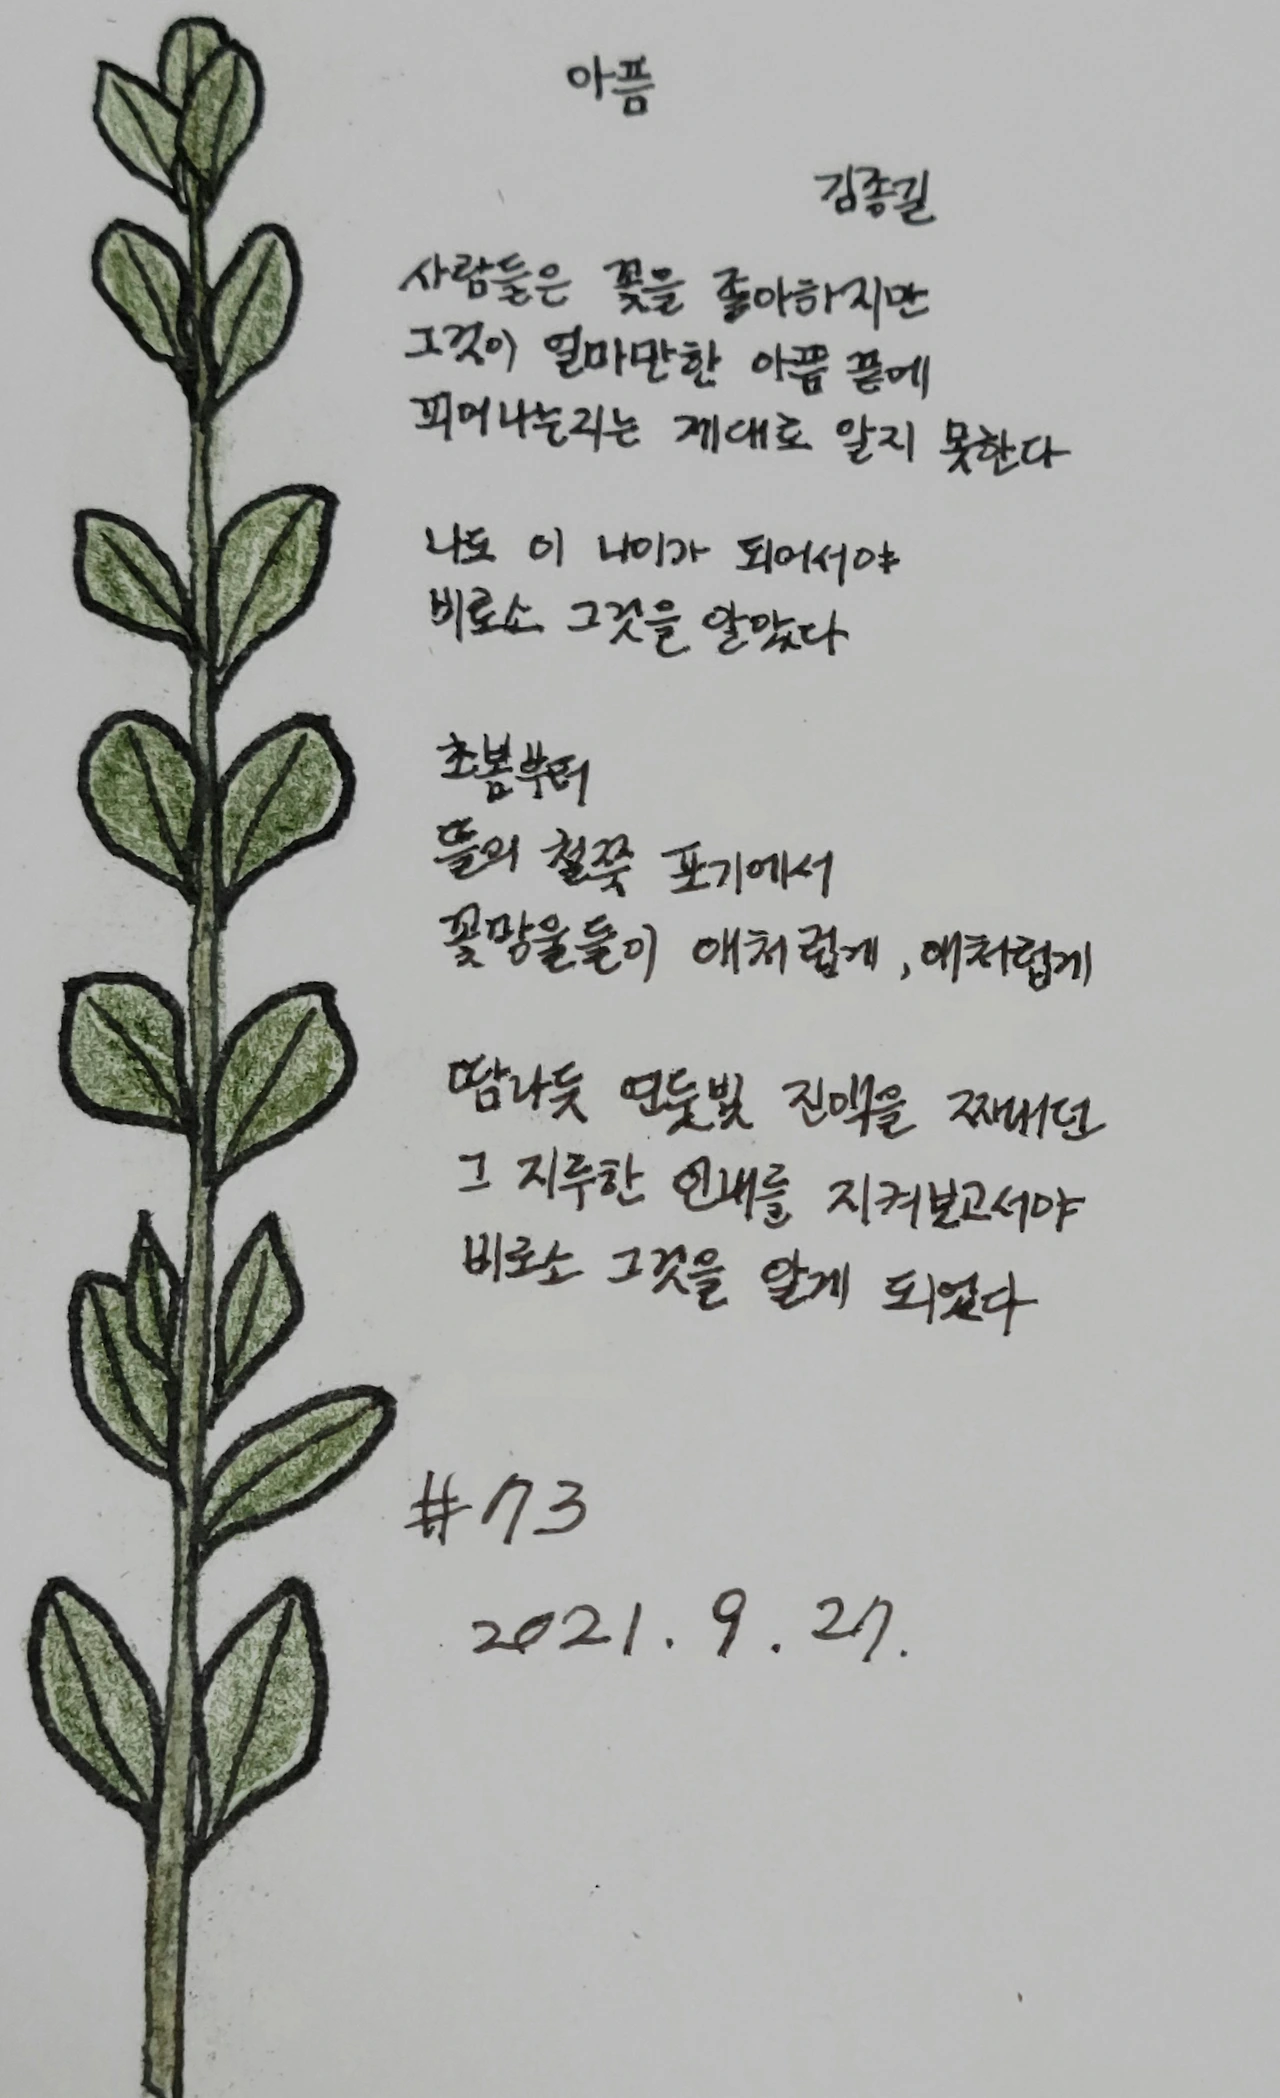 아픔
김종길
사람들은 꽃을 좋아하지만
그것이 얼마만한 아픔 끝에
피어나는지는 제대로 알지 못한다
나도 이 나이가 되어서야
비로소 그것을 알았다
초봄부터
뜰의 철쭉 포기에서
꽃망울들이 애처럽게, 애처럽게
땀나듯 연둣빛 진액을 짜내던
그 지루한 인내를 지켜보고서야
비로소 그것을 알게 되었다
#73
2021. 9. 27.